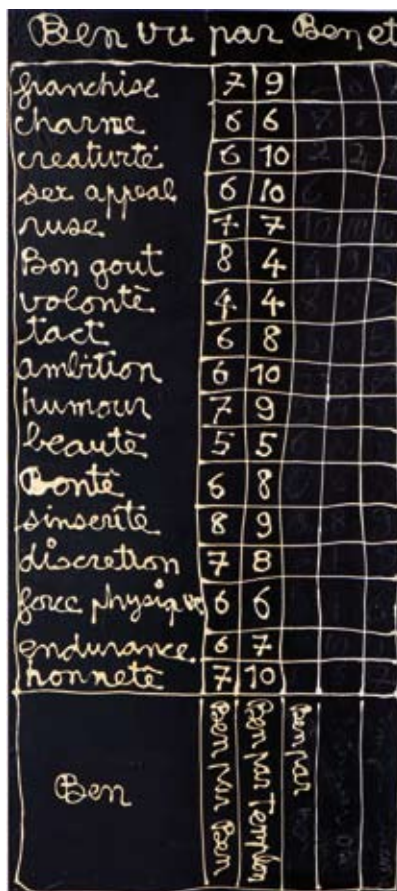 Ben vu par Ben et
franchise 7 9
charme 6 6
creativité 6 10
sex appeal 6 10
ruse 7 7
Bon gout 8 4
volonté 4 4
tact 6 8
ambition 6 10
humour 7 9
beauté 5 5
Bonté 6 8
sinserité 8 9
discretion 7 8
force physique 6 6
endurance 6 7
honneté 7 10
Ben
Ben par Ben
Ben par Templon
Ben par